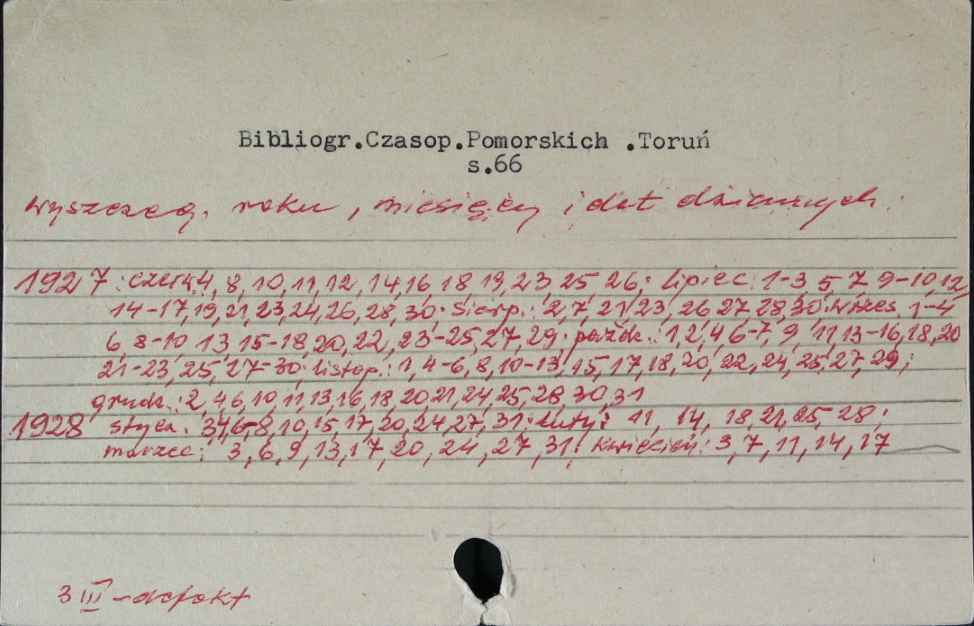 Bibliogr.Czasop.Pomorskich .Toruń
s.66
wyszczeg. roku, miesięcy i dat dziennych.
1927: czerw. 4, 8, 10, 11, 12, 14, 16 18 19, 23 25 26; Lipiec: 1-3 5, 7 9-10, 12,
14-17, 19, 21, 23, 24, 26, 28, 30. Sierp.: 2, 7, 21, 23, 26 27 28, 30. wrzes. 1-4
6 8-10 13 15-18, 20, 22, 23-25, 27, 29. paźdz.: 1, 2, 4 6-7, 9 11, 13-16, 18, 20
21-23, 25, 27-30. listop.: 1, 4-6, 8, 10-13, 15, 17, 18, 20, 22, 24, 25, 27, 29;
grudz.: 2, 4 6, 10, 11, 13, 16, 18 20 21, 24, 25, 28, 30, 31
1928 stycz. 6-8, 10, 15, 17, 20, 24, 27, 31. luty: 11, 14, 18, 21, 25, 28;
marzec: 3, 6, 9, 13, 17, 20, 24, 27, 31; kwiecień: 3, 7, 11, 14, 17
3 III - defekt